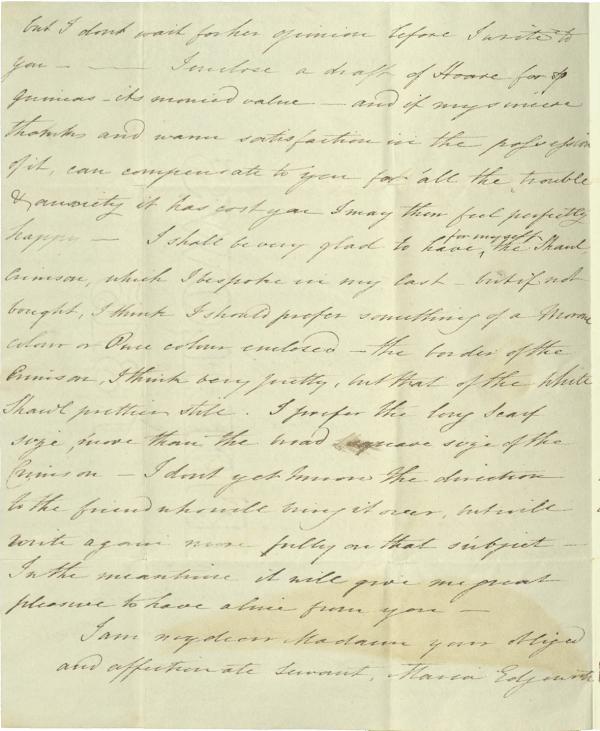 but I dont wait for her opinion before I write to
you — — I enclose a draft of Hoare for
guineas – its monied value – and if my sincere
thanks and warm satisfaction in the possession
of it, can compensate to you for all the trouble
& anxiety it has cost you I may then feel perfectly
happy — I shall be very glad to have, for myself the Shawl
Crimson, which I bespoke in my last – but if not
bought, I think I should prefer something of a Morone
colour or Puce colour enclosed – the border of the
Crimson, I think very pretty, but that of the White
Shawl prettier still. I prefer the long Scarf
size, more than the broad square size of the
Crimson — I dont yet know the direction
to the friend who will bring it over, but will
write again more fully on that subject —
In the meantime it will give me great
pleasure to have a line from you —
I am my dear Madam your obliged
and affectionate Servant, Maria Edgeworth